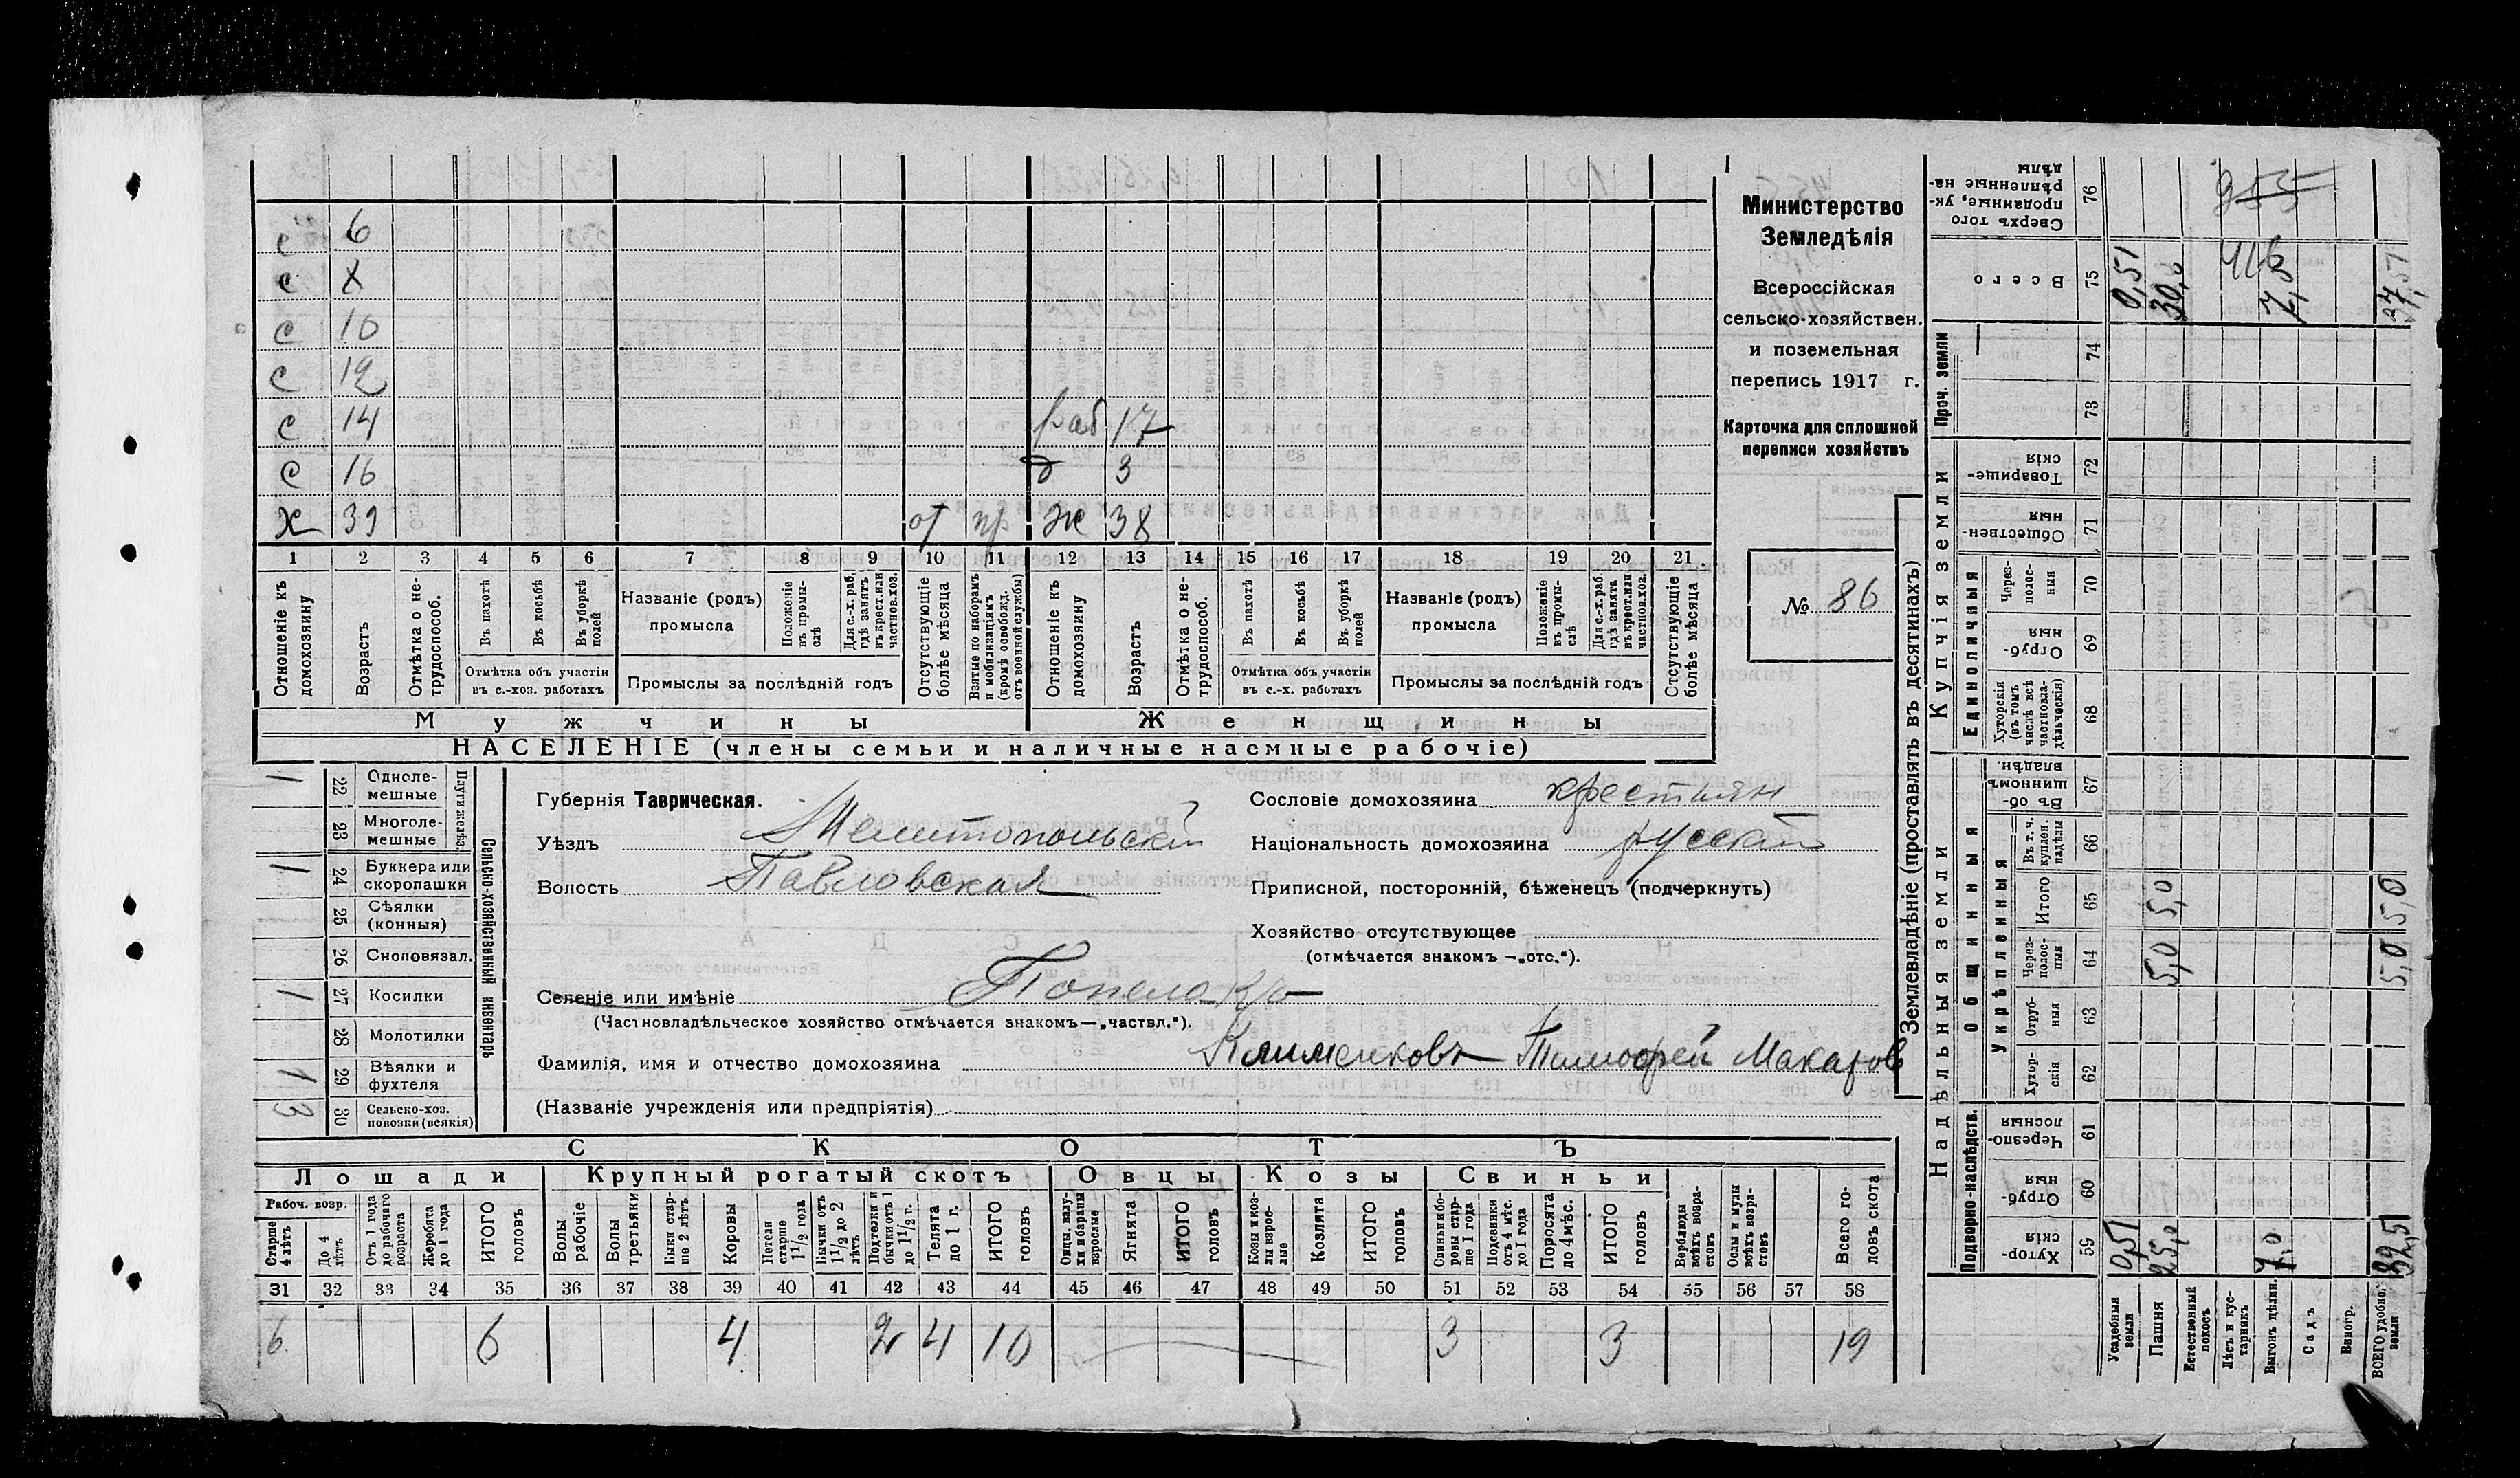 с 6
с 8
с 10
с 12
с 14 раб. 17
с 16 д 3
Х 39 от пр ж 38
1 2 3 4 5 6 7 8 9 10 11 12 13 14 15 16 17 18 19 20 21
Отношеніе къ домохозяину
Возрастъ
Отмѣтка о не-трудоспособ.
Въ пахотѣ
Въ косьбѣ
Въ уборкѣ полей
Отмѣтка объ участіи въ с.-хоз. работахъ
Названіе (родъ) промысла
Положеніе въ промы-слѣ
Для с.-х. раб. гдѣ занятъ въ крест. или частнов. хоз.
Промыслы за послѣдній годъ
Отсутствующіе болѣе мѣсяца
Взятые по наборамъ и мобилизаціямъ (кромѣ освобожд. отъ военной службы)
Отношеніе къ домохозяину
Возрастъ
Отмѣтка о не-трудоспособ.
Въ пахотѣ
Въ косьбѣ
Въ уборкѣ полей
Отмѣтка объ участіи въ с.-х. работахъ
Названіе (родъ) промысла
Положеніе въ промы-слѣ
Для с.-х. раб. гдѣ занята въ крест. или частнов. хоз.
Промыслы за послѣдній годъ
Отсутствующіе болѣе мѣсяца
Мужчины Женщины
НАСЕЛЕНІЕ (члены семьи и наличные наемные рабочіе)
Министерство
Земледѣлія
Всероссійская
сельско-хозяйствен.
и поземельная
перепись 1917 г.
Карточка для сплошной
переписи хозяйствъ
№ 86
Сельско-хозяйственный инвентарь
Плуги желѣз.
1 22 Одноле-мешные
23 Многоле-мешные
1 24 Буккера или скоропашки
25 Сѣялки (конныя)
26 Сноповязал.
1 27 Косилки
28 Молотилки
1 29 Вѣялки и фухтеля
3 30 Сельско-хоз. повозки (всякія)
Губернія Таврическая.
Уѣздъ Мелитопольскій
Волость Павловская
Сословіе домохозяина крестьян
Національность домохозяина русскій
Приписной, посторонній, бѣженецъ (подчеркнуть)
Хозяйство отсутствующее
(отмѣчается знакомъ —„отс.“).
Селеніе или имѣніе
(Частновладѣльческое хозяйство отмѣчается знакомъ—„частвл.“).
Фамилія, имя и отчество домохозяина Клименковъ Тимофей Макаров
(Названіе учрежденія или предпріятія)
СКОТЪ
Лошади Крупный рогатый скотъ Овцы Козы Свиньи
Рабоч. возр.
Старше 4 лѣтъ
До 4 лѣтъ
Отъ 1 года до рабочаго возраста
Жеребята до 1 года
ИТОГО головъ
Волы рабочіе
Волы третьяки
Быки стар-ше 2 лѣтъ
Коровы
Нетели старше 1½ года
Бычки отъ 1½ до 2 лѣтъ
Подтелки и бычки отъ 1 до 1½ г.
Телята до 1 г.
ИТОГО головъ
Овцы, валу-хи и бараны взрослые
Ягнята
ИТОГО головъ
Козы и коз-лы взрос-лые
Козлята
ИТОГО головъ
Свиньи бо-ровы стар-ше 1 года
Подсвинки отъ 4 мѣс. до 1 года
Поросята до 4 мѣс.
ИТОГО головъ
Верблюды всѣхъ возра-стовъ
Ослы и мулы всѣхъ возра-стовъ
Всего го-ловъ скота
31 32 33 34 35 36 37 38 39 40 41 42 43 44 45 46 47 48 49 50 51 52 53 54 55 56 57 58
6 6 4 2 4 10 3 3 19
Землевладѣніе (проставлять въ десятинахъ)
Надѣльныя земли
Купчія земли
Проч. земли
Подворно-наслѣдств.
Общинныя
Укрѣпленныя
Единоличныя
Сверхъ того проданные, ук-рѣпленные на-дѣлы 76
Всего 75 0,51 30,0 7,0 37,51
74
73
Товарище-скія 72
Обществен-ныя 71
Через-полос-ныя 70
Отруб-ныя 69
Хуторскія (въ томъ числѣ всѣ частновла-дѣльческія) 68
Въ об-щинномъ владѣн. 67
Въ т. ч. куплен. надѣлы 66
Итого 65 5,0 5,0
Через-полос-ныя 64 5,0 5,0
Отруб-ныя 63
Хутор-скія 62
Черезпо-лосныя 61
Отруб-ныя 60
Хутор-скія 59 0,51 25,0 7,0 32,51
Усадебныя земли
Пашня
Естественный покосъ
Лѣсъ и кус-тарникъ
Выгонъ дѣлин.
Садъ
Виногр.
ВСЕГО удобной земли